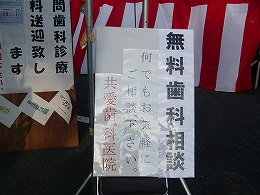 無料歯科相談
何でもお気軽に
ご相談下さい。
共愛歯科医院
問歯科診療
料送迎致し
ます